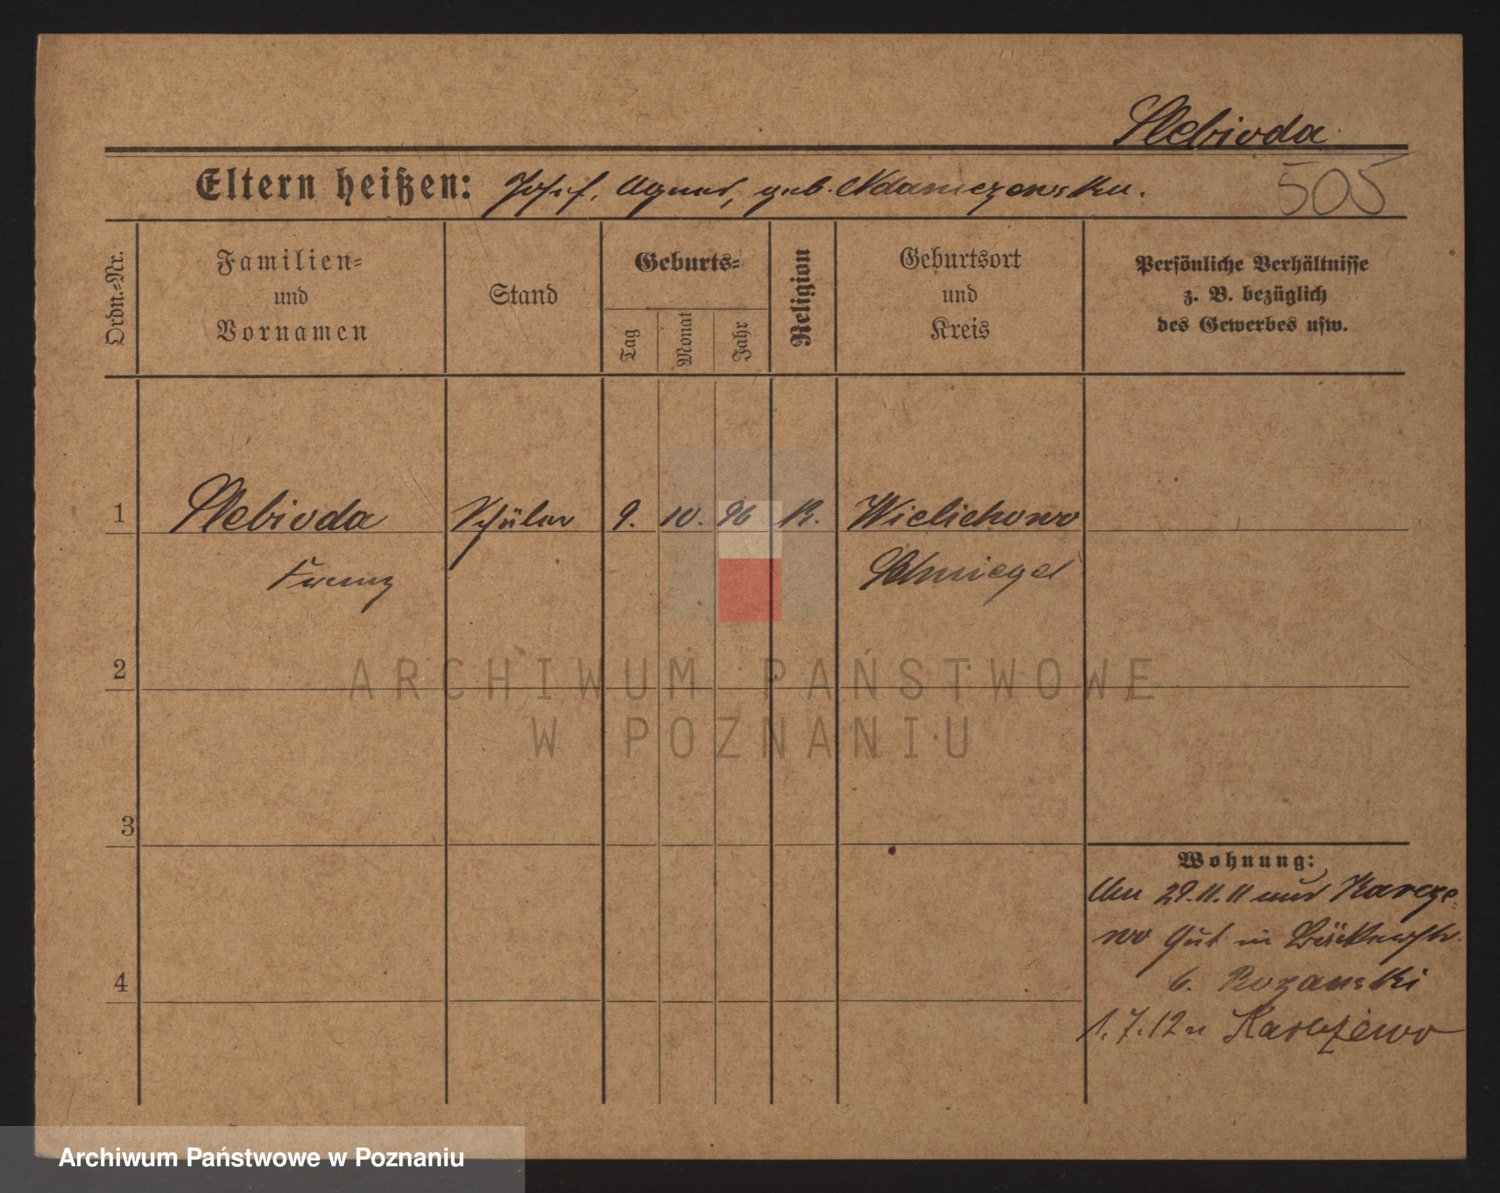 Slebioda
Eltern heißen: Josef, Agnes, geb. Adamczewska.
505
Ordn.-Nr.
Familien-
und
Vornamen
Stand
Geburts-
Tag
Monat
Jahr
Religion
Geburtsort
und
Kreis
Persönliche Verhältnisse
z. B. bezüglich
des Gewerbes usw.
1
Slebioda
Schüler
9.
10.
96
K.
Wielichowo
Franz
Schmiegel
2
ARCHIWUM PAŃSTWOWE
W POZNANIU
3
Wohnung:
29.11.11 Karcze
wo Gut in
b. Rozanski
4
1.7.12 n Karczewo
Archiwum Państwowe w Poznaniu